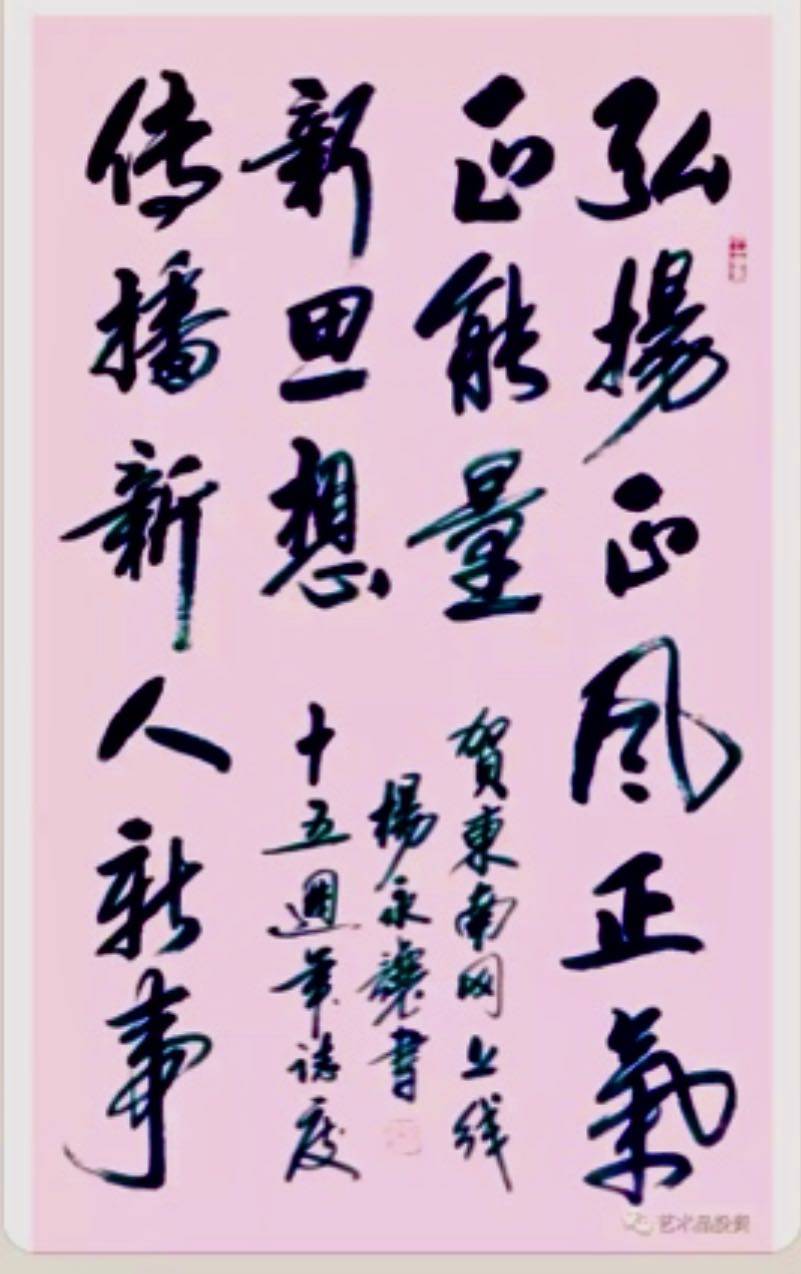 弘揚正风正氣
正能量
传播新人新事
新思想
賀東南网上线
十五週年誌慶
楊永讓書
艺术品投资